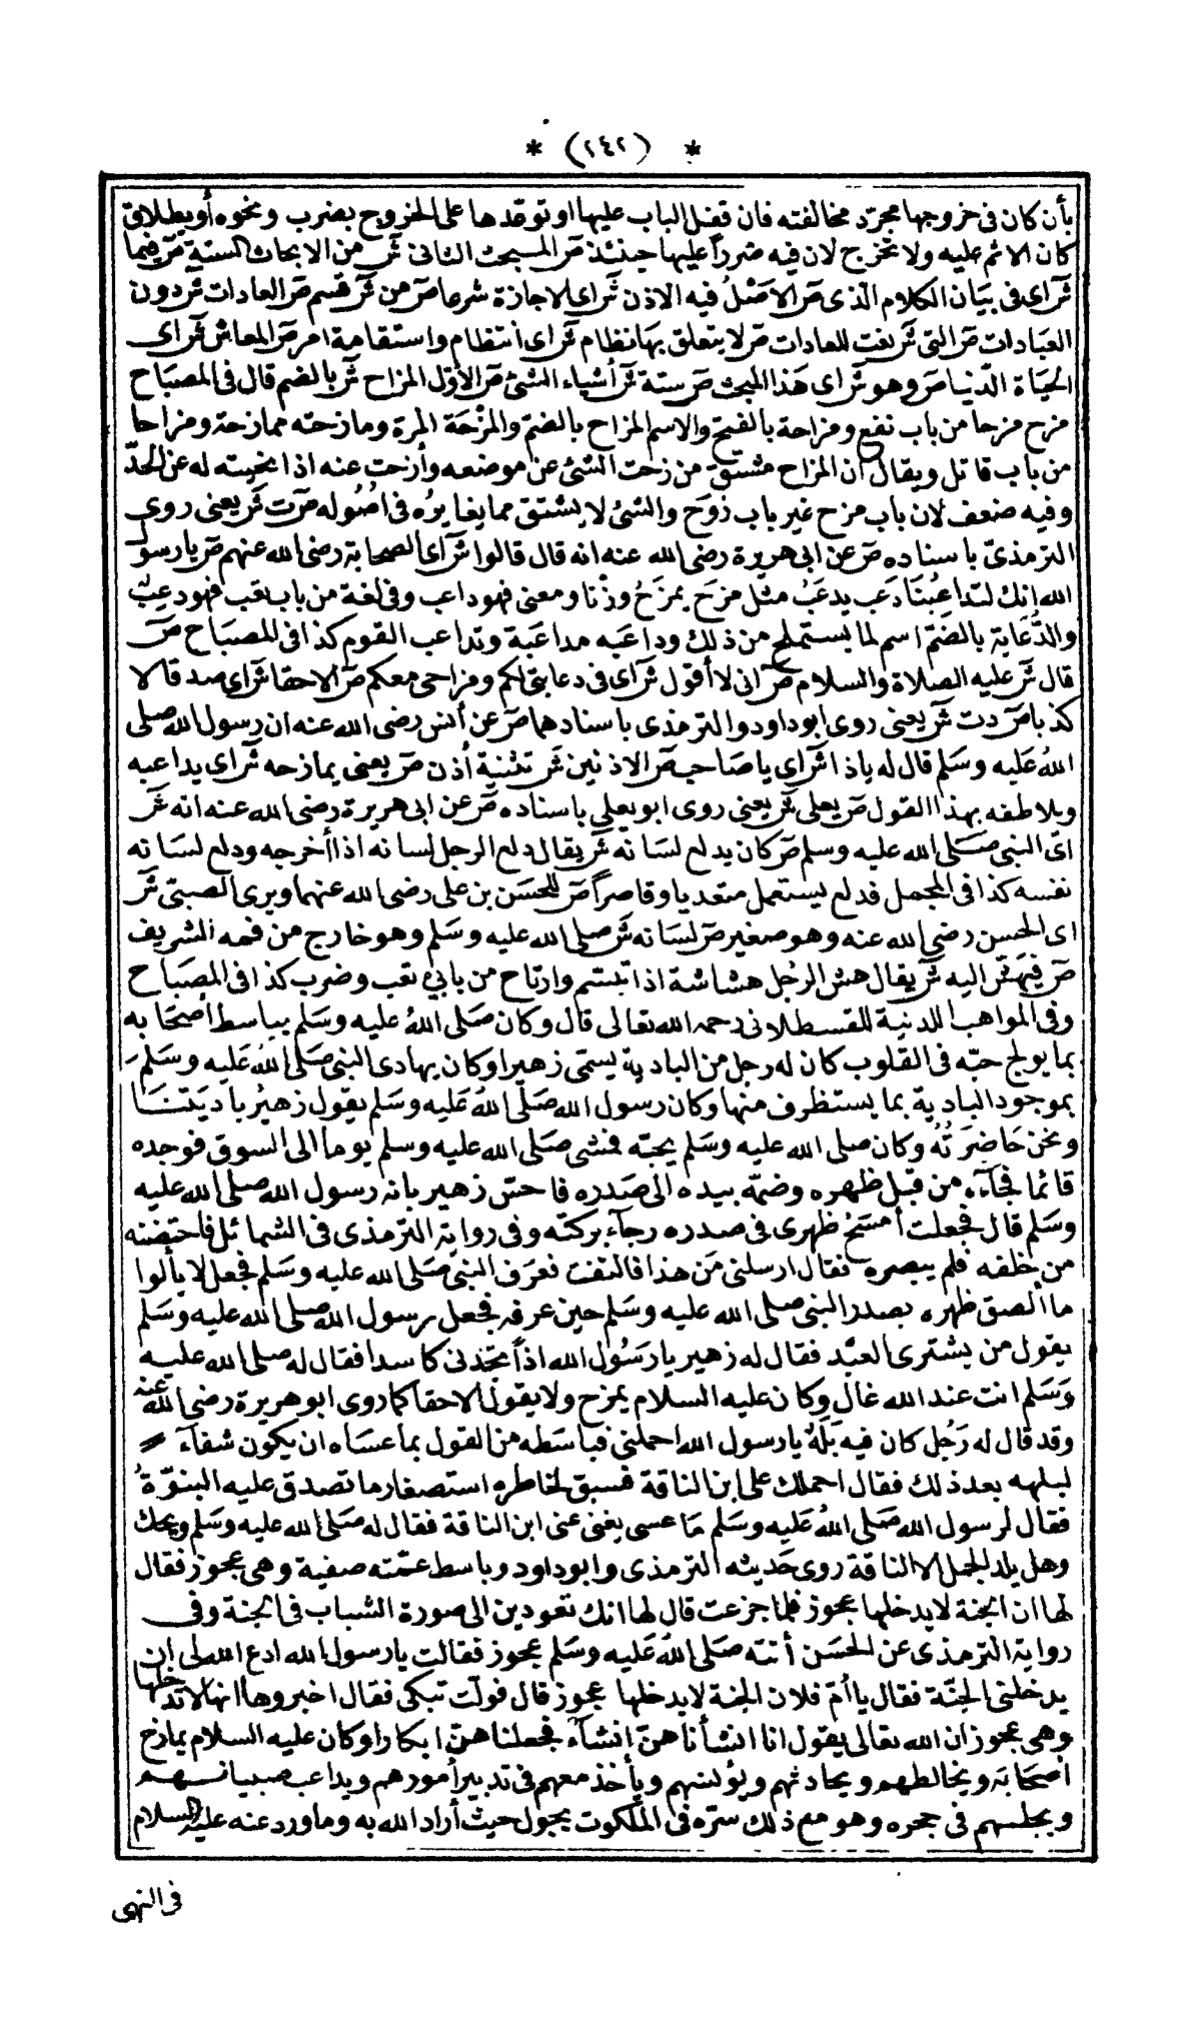 * (٢٤٢) *
بأن كان فى خروجها مجرّد مخالفته فان قفل الباب عليها او توعّدها على الخروج بضرب ونحوه أو بطلاق
كان الاثم عليه ولا تخرج لان فيه ضرراً عليها حينئذ صّ المبحث الثانى شّ من الابحاث الستة صّ فيما
شّ اى فى بيَان الكلام الّذى صّ الاَصْلُ فيه الاذن شّ اى الاجازة شرعا صّ من شّ قسم صّ العادات شّ دون
العبَادات صّ التى شّ نعت للعادات صّ لا يتعلق بهَا نظام شّ اى انتظام واستقامة امر صّ المعاش شّ اى
الحيَاة الدّنيا صّ وهو شّ اى هَذا المبحث صّ ستة شّ أشياء الشئ صّ الأوّل المزاح شّ بالضم قال فى المصبَاح
مزح مزحا من باب نفع ومزاحة بالفتح والاسم المزاح بالضمّ والمَزْحَة المرة ومازحته ممازحة ومزاحا
من باب قاتل ويقال ان المزاح مشتق من زحت الشئ عن موضعه وأزحت عنه اذا نحيته له عن الجدّ
وفيه ضعف لان باب مزح غير باب زوَح والشئ لا يشتق مما يغايرُه فى اصُوله صّ ت شّ يعنى روى
الترمذىّ باسناده صّ عن ابى هريرة رضى الله عنه انه قال قالوا شّ اى الصحابة رضى الله عنهم صّ يا رسول
الله انك لتداعِبُنَا دَعَب يدعَبُ مثل مزحَ يمزَحُ وزْنا ومعنى فهو داعب وفى لغة من باب تعب فهو دعِبٌ
والدُّعَابة بالضّمّ اسم لما يُستملح من ذلك وداعَبه مداعَبة وتداعب القوم كذا فى المصبَاح صّ
قال شّ عليه الصلاة والسلام صّ انى لا أقول شّ اى فى دعابتى لكم ومزاحى معكم صّ الا حقا شّ اى صدقا لا
كذبا صّ دت شّ يعنى روى ابو داود والترمذى باسنادهما صّ عن أنس رضى الله عنه ان رسول الله صلى
اللهُ عَليه وسَلم قال له ياذا شّ اى يا صَاحب صّ الاذنين شّ تثنية أذن صّ يعنى يمازحه شّ اى يداعبه
ويلاطفه بهذا القول صّ يعلى شّ يعنى روى ابو يعلى باسناده صّ عن ابى هريرة رضى الله عنه انه شّ
اىّ النبى صَلى الله عليه وسلم صّ كان يدلع لسَانه شّ يقال دلع الرجل لسانه اذا أخرجه ودلع لسَانه
نفسه كذا فى المجمل فدلع يستعمل متعديا وقاصراً صّ للحسَن بن على رضى الله عنهما ويرى الصبىّ شّ
اى الحسن رضى الله عنه وهو صغير صّ لسَانه شّ صلى الله عليه وسَلم وهو خارج من فمه الشريف
صّ فيَهَشّ اليه شّ يقال هش الرجُل هشاشة اذا تبسّم وارتاح من بابىْ تعب وضرب كذا فى المصبَاح
وفى المواهب اللدنية للقسطلانى رحمه الله تعالى قال وكان صَلى اللهُ عليه وسَلم يباسط أصحَابه
بما يولج حبّه فى القلوب كان له رجل من البادية يسمّى زهيرا وكان يهادى النبى صَلى اللهُ عَليه وسَلم
بموجود البادية بما يستظرف منها وكان رسول الله صَلى اللهُ عَليه وسَلم يقول زهيرُ باديَتنَا
ونحن حَاضرَتُهُ وكان صلى الله عليه وسَلم يحبّه فمشى صَلى الله عليه وسلم يوما الى السوق فوجده
قائما فجآءه من قبَل ظهره وضمّه بيده الى صَدره فاحسّ زهير بانه رسول الله صلى الله عليه
وسَلم قال فجعلت أمسَحُ ظهرى فى صدره رجآء بركته وفى رواية الترمذى فى الشمائل فاحتضنته
من خلفه فلم يبصره فقال ارسلنى مَن هذا فالتفت فعرَف النبى صَلى الله عليه وسَلم فجعل لا يألوا
ما ألصق ظهره بصدر النبى صلى الله عليه وسَلم حين عرفه فجعل رسول الله صلى الله عليه وسَلم
يقول من يشترى العبْد فقال له زهير يا رَسُول الله اذاً تجدنى كاسدا فقال له صلى الله عليه
وَسَلم انت عند الله غال وكان عليه السلام يمزح ولا يقول الا حقا كما روى ابو هريرة رضى الله عنه
وقد قال له رَجُل كان فيه بَلَهٌ يا رسول الله احملنى فباسَطه من القول بما عسَاه ان يكون شفآء
لبلهه بعد ذلك فقال احملك على ابن الناقة فسبق لخاطره استصغار ما تصدق عليه البنوّةُ
فقال لرسول الله صَلى اللهُ عَليه وسَلم مَا عسى يغنى عنى ابن الناقة فقال له صَلى الله عليه وسَلم ويحك
وهل يلد الجمل الا الناقة روى حَديثه الترمذى وابو داود وباسط عمّته صفية وهى عجوز فقال
لها ان الجنة لا يدخلها عجوز فلما جزعت قال لها انك تعودين الى صورة الشباب فى الجنة وفى
رواية الترمذى عن الحسَن أتته صَلى اللهُ عَليه وسَلم عجوز فقالت يا رسول الله ادع الله لى ان
يدخلنى الجنّة فقال يا أمّ فلان الجنة لا يدخلها عجوز قال فولّت تبكى فقال اخبروها انها لا تدخلها
وهى عجوز ان الله تعالى يقول انا انشأناهنّ إنشآء فجعلناهنّ ابكارا وكان عليه السلام يمازح
أصحَابَه ويخالطهم ويحادثهم ويؤنسهم ويأخذ معهم فى تدبير أمورهم ويداعب صبيانهم
ويجلسهم فى حجره وهو مع ذلك سرّه فى الملكوت يجول حيث أراد الله به وما ورد عنه عليه السلام
فى النهى